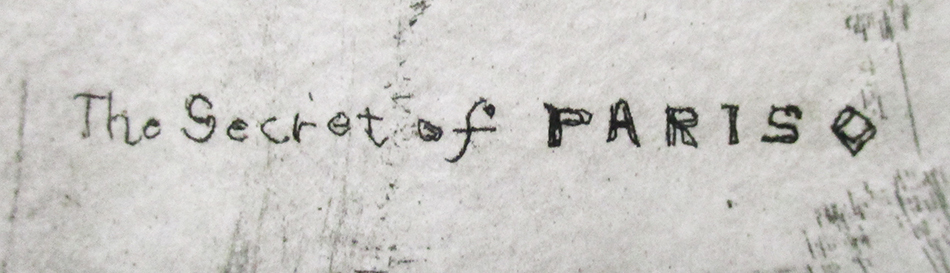 The Secret of PARIS